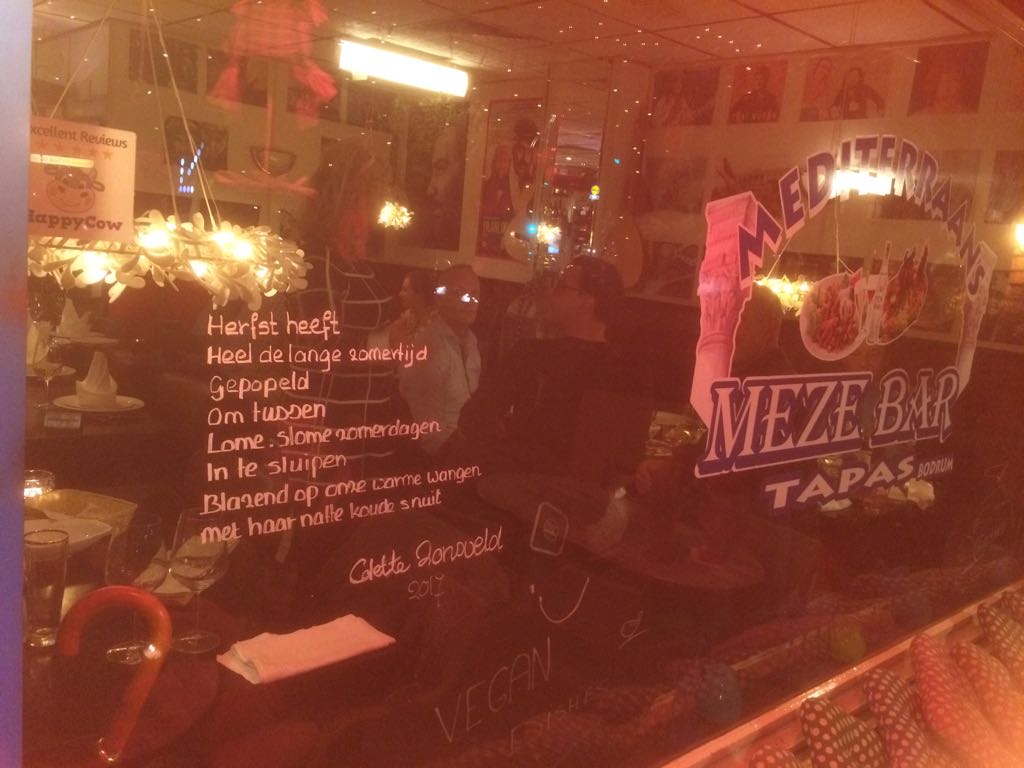 Excellent Reviews
HappyCow
MEDITERRAANS
MEZE BAR
TAPAS BODRUM
Herfst heeft
Heel de lange zomertijd
Gepopeld
Om tussen
Lome. slome zomerdagen
In te sluipen
Blazend op onze warme wangen
met haar natte koude snuit
Colette Zonsveld
2017
VEGAN